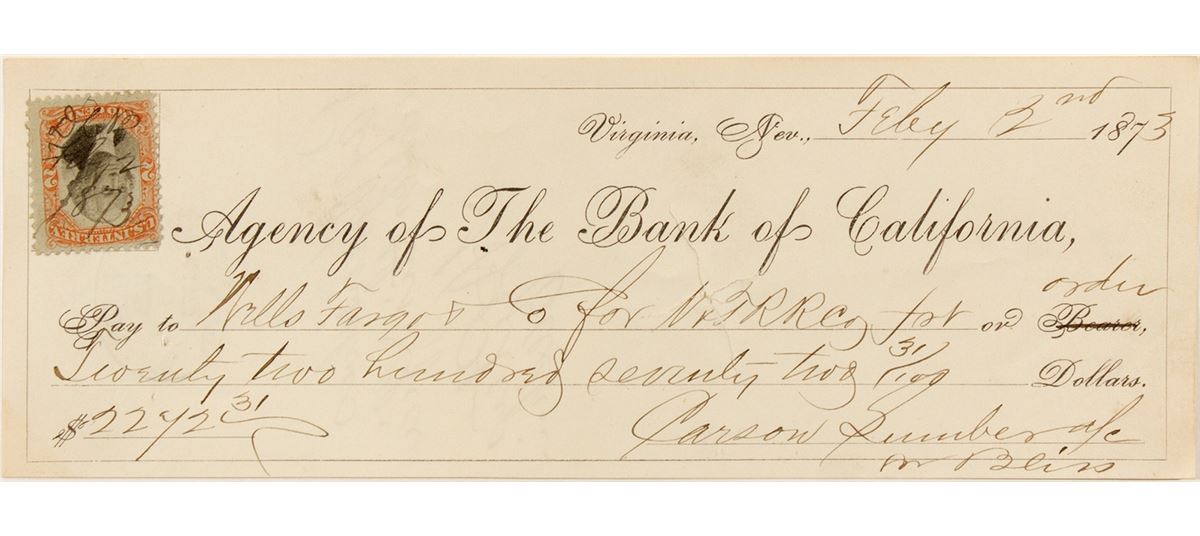 Virginia, Nev., Feby 2nd 1873
Agency of The Bank of California,
order
Pay to Wells Fargo & Co for V&TRRCo frt or Bearer,
Twenty two hundred seventy two 31/100 Dollars.
$2272 31
Carson Lumber a/c
Bliss